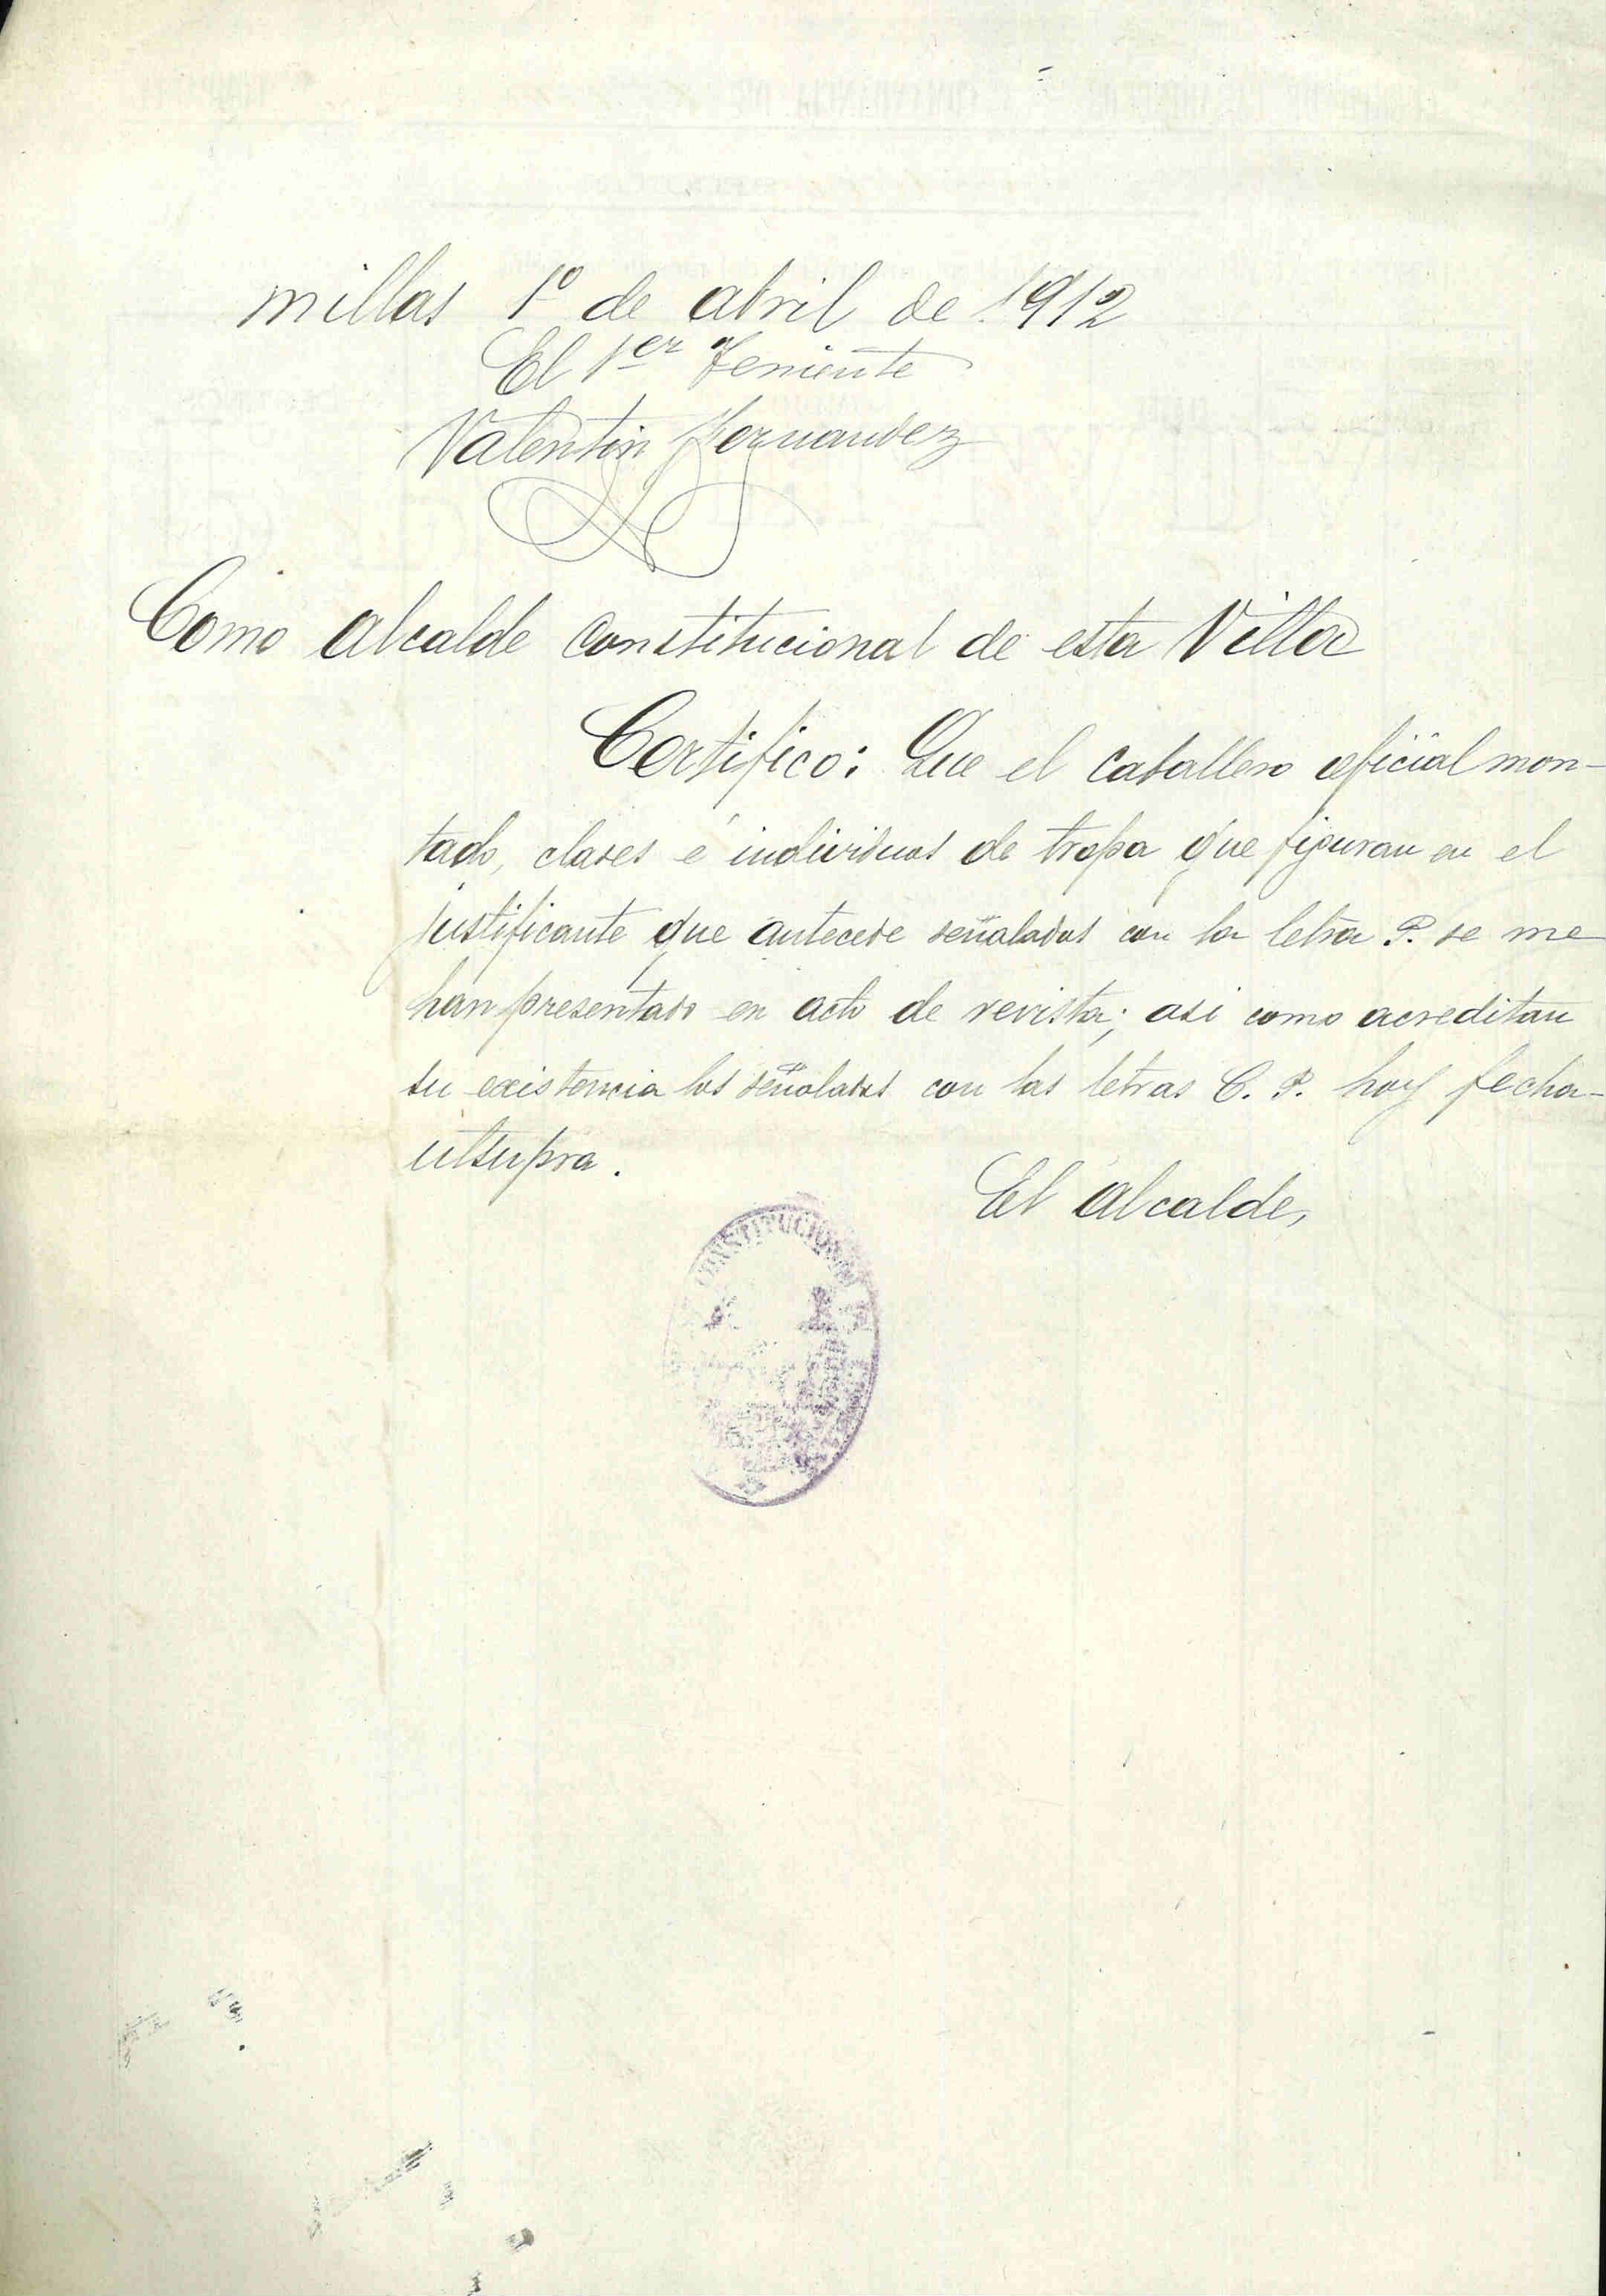 millas 1º de abril de 1912
El 1er Teniente
Valentin Fernandez
Como alcalde Constitucional de esta Villa
Certifico: Que el caballero oficial mon-
tado, clases é individuos de tropa que figuran en el
justificante que antecede señalados con la letra P. se me
han presentado en acto de revista; asi como acreditan
su existencia los señalados con las letras C. P. hoy fecha-
utsupra.
El alcalde,
CONSTITUCIONAL